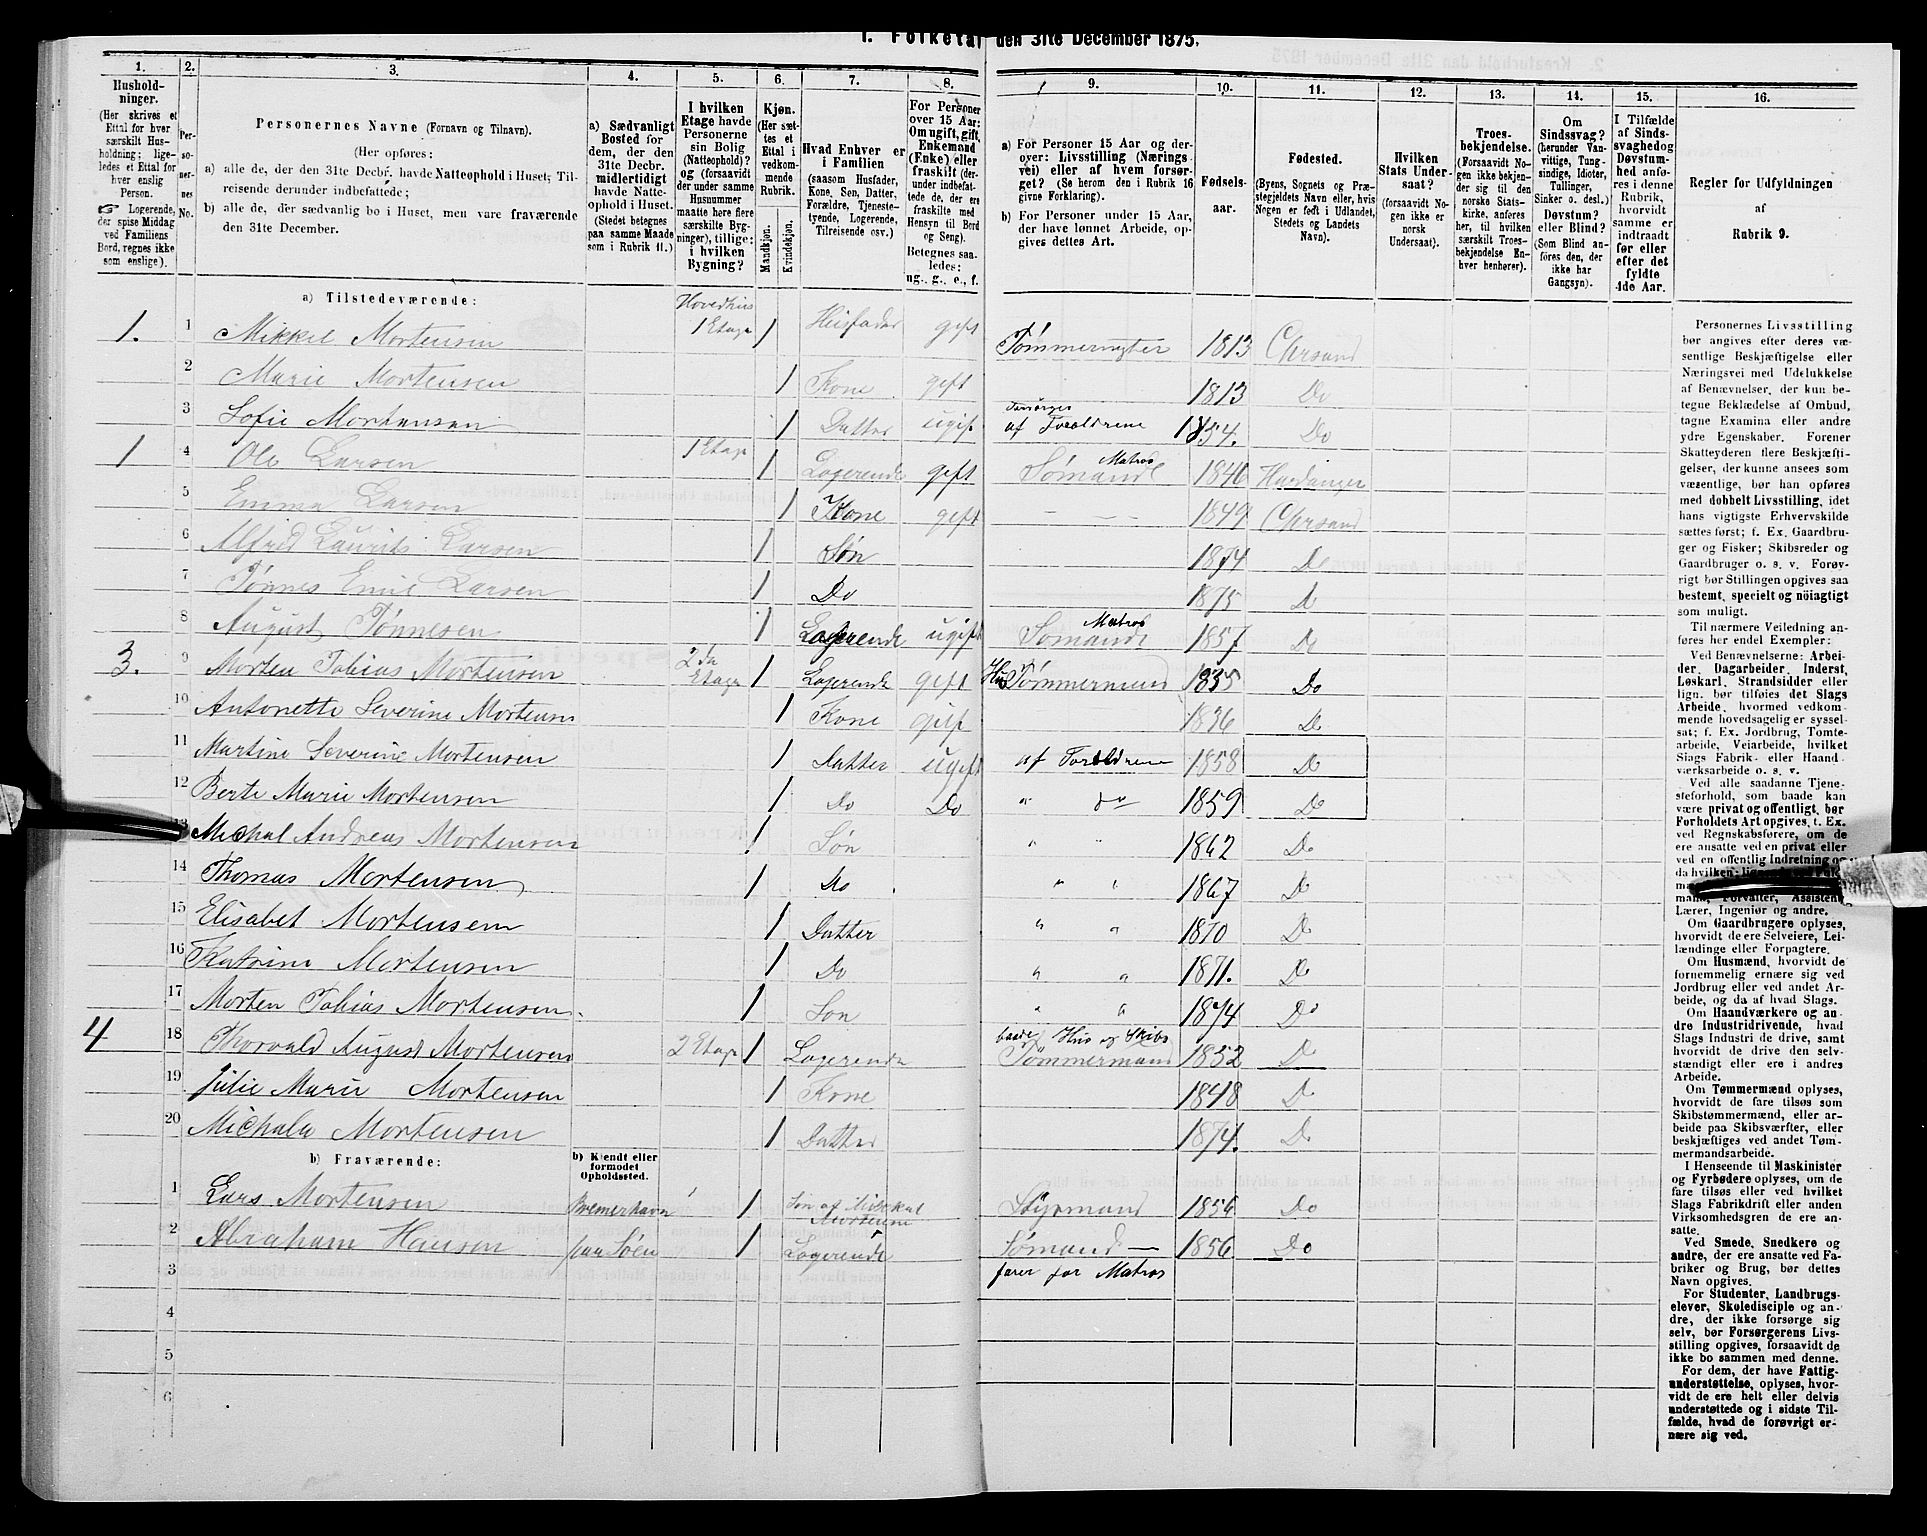 1. Folketal den 31te December 1875.
1. 2. 3. 4. 5. 6. 7. 8. 9. 10. 11. 12. 13. 14. 15. 16.
Hushold-
ninger.
(Her skrives et
Ettal for hver
særskilt Hus-
holdning; lige-
ledes et Ettal for
hver enslig
Person.
Logerende,
der spise Middag
ved Familiens
Bord, regnes ikke
som enslige).
Per-
so-
ner-
nes
No.
Personernes Navne (Fornavn og Tilnavn).
(Her opføres:
a) alle de, der den 31te Decbr. havde Natteophold i Huset; Til-
reisende derunder indbefattede;
b) alle de, der sædvanlig bo i Huset, men vare fraværende
den 31te December.
a) Sædvanligt
Bosted for
dem, der den
31te Decbr.
midlertidigt
havde Natte-
ophold i Huset.
(Stedet betegnes
paa samme Maade
som i Rubrik 11.)
I hvilken
Etage havde
Personerne
sin Bolig
(Natteophold)?
og (forsaavidt
der under samme
Husnummer
maatte høre flere
særskilte Byg-
ninger), tillige:
i hvilken
Bygning?
Kjøn.
(Her sæt-
tes et
Ettal i
vedkom-
mende
Rubrik.
Mandkjøn.
Kvindekjøn.
Hvad Enhver er
i Familien
(saasom Husfader,
Kone, Søn, Datter,
Forældre, Tjeneste-
tyende, Logerende,
Tilreisende osv.)
For Personer
over 15 Aar:
Om ugift, gift,
Enkemand
(Enke) eller
fraskilt (der-
under indbefat-
tede de, der ere
fraskilte med
Hensyn til Bord
og Seng).
Betegnes saa-
ledes:
ug., g., e., f.
a) For Personer 15 Aar og der-
over: Livsstilling (Nærings-
vei) eller af hvem forsør-
get? (Se herom den i Rubrik 16
givne Forklaring.)
b) For Personer under 15 Aar,
der have lønnet Arbeide, op-
gives dettes Art.
Fødsels-
aar.
Fødested.
(Byens, Sognets og Præ-
stegjeldets Navn eller, hvis
Nogen er født i Udlandet,
Stedets og Landets
Navn).
Hvilken
Stats Under-
saat?
(forsaavidt No-
gen ikke er
norsk
Undersaat).
Troes-
bekjendelse.
(Forsaavidt No-
gen ikke bekjen-
der sig til den
norske Stats-
kirke, anføres
her, til hvilken
særskilt Troes-
bekjendelse En-
hver henhører).
Om
Sindssvag?
(herunder Van-
vittige, Tung-
sindige, Idioter,
Tullinger,
Sinker o. desl.)
Døvstum?
eller Blind?
(Som Blind an-
føres den, der
ikke har
Gangsyn).
I Tilfælde
af Sinds-
svaghed og
Døvstum-
hed anfø-
res i denne
Rubrik,
hvorvidt
samme er
indtraadt
før eller
efter det
fyldte
4de Aar.
Regler for Udfyldningen
af
Rubrik 9.
a) Tilstedeværende:
Hovedhus
1. 1 Mikkel Mortensen 1 Etage 1 Husfader gift Tømmermester 1813 Chrsand
2 Marie Mortensen 1 Kone gift 1813 Do
3 Sofie Mortensen 1 Datter ugift forsørges af Forældrene 1854. Do
1 4 Ole Larsen 1 Etage 1 Logerende gift Sømand Matros 1846 Hardanger
5 Emma Larsen 1 Kone gift 1849 Chrsand
6 Alfred Laurits Larsen 1 Søn 1874 Do
7 Tønnes Emil Larsen 1 Do 1875 D
8 August Tønnesen 1 Logerende ugift Sømand Matros 1857 Do
3. 9 Morten Tobias Mortensen 2da Etage 1 Logerende gift Hus Tømmermand 1835 Do
10 Antonette Severine Mortensen 1 Kone gift 1836 Do
11 Martine Severine Mortensen 1 Datter ugift af Forældrene 1858 Do
12 Berte Marie Mortensen 1 Do Do " do 1859 Do
13 Michal Andreas Mortensen 1 Søn " " 1862 Do
14 Thomas Mortensen 1 Do " " 1867 Do
15 Elisabet Mortensen 1 Datter " " 1870 Do
16 Katrine Mortensen 1 Do " " 1871. Do
17 Morten Tobias Mortensen. 1 Søn " " 1874 Do
4 18 Thorvald August Mortensen 2 Etage 1 Logerende baade Hus og Skibs Tømmermand 1852 D
19 Julie Marie Mortensen 1 Kone 1848 D
20 Michala Mortensen 1 Datter 1874. Do
b) Fraværende:
b) Kjendt eller
formodet
Opholdssted.
1 Lars Mortensen Bremerhavn 1 Søn af Mikkal Mortensen Styrmand 1856 Do
2 Abraham Hansen paa Søen 1 Logerende Sømand — 1856 Do
3 farer for Matros
4
5
6
Personernes Livsstilling
bør angives efter deres væ-
sentlige Beskjæftigelse eller
Næringsvei med Udelukkelse
af Benævnelser, der kun be-
tegne Beklædelse af Ombud,
tagne Examina eller andre
ydre Egenskaber. Forener
Skatteyderen flere Beskjæfti-
gelser, der kunne ansees som
væsentlige, bør han opføres
med dobbelt Livsstilling, idet
hans vigtigste Erhvervskilde
sættes først; f. Ex. Gaardbru-
ger og Fisker; Skibsreder og
Gaardbruger o. s. v. Forøv-
rigt bør Stillingen opgives saa
bestemt, specielt og nöiagtigt
som muligt.
Til nærmere Veiledning an-
føres her endel Exempler:
Ved Benævnelserne: Arbei-
der, Dagarbeider, Inderst,
Løskarl, Strandsidder eller
lign. bør tilføies det Slags
Arbeide, hvormed vedkom-
mende hovedsagelig er syssel-
sat; f. Ex. Jordbrug, Tomte-
arbeide, Veiarbeide, hvilket
Slags Fabrik- eller Haand-
værksarbeide o. s. v.
Ved alle saadanne Tjene-
steforhold, som baade kan
være privat og offentligt, bør
Forholdets Art opgives, t. Ex.
ved Regnskabsførere, om de
ere ansatte ved en privat eller
ved en offentlig Indretning og
da hvilken;
mand, Forvalter, Assistent,
Lærer, Ingeniør og andre.
Om Gaardbrugere oplyses,
hvorvidt de ere Selveiere, Lei-
lændinge eller Forpagtere.
Om Husmænd, hvorvidt de
fornemmelig ernære sig ved
Jordbrug eller ved andet Ar-
beide, og da af hvad Slags.
Om Haandværkere og an-
dre Industridrivende, hvad
Slags Industri de drive, samt
hvorvidt de drive den selv-
stændigt eller ere i andres
Arbeide.
Om Tømmermænd oplyses,
hvorvidt de fare tilsøs som
Skibstømmermænd, eller ar-
beide paa Skibsværfter, eller
beskjæftiges ved andet Tøm-
mermandsarbeide.
I Henseende til Maskinister
og Fyrbødere oplyses, om de
fare tilsøs eller ved hvilket
Slags Fabrikdrift eller anden
Virksomhedsgren de ere an-
satte.
Ved Smede, Snedkere og
andre, der ere ansatte ved Fa-
briker og Brug, bør dettes
Navn opgives.
For Studenter, Landbrugs-
elever, Skoledisciple og an-
dre, der ikke forsørge sig
selv, bør Forsørgerens Livs-
stilling opgives, forsaavidt de
ikke bo sammen med denne.
For dem, der have Fattig-
understøttelse, oplyses, hvor-
vidt de ere helt eller delvis
understøttede og i sidste Til-
fælde, hvad de forøvrigt er-
nære sig ved.